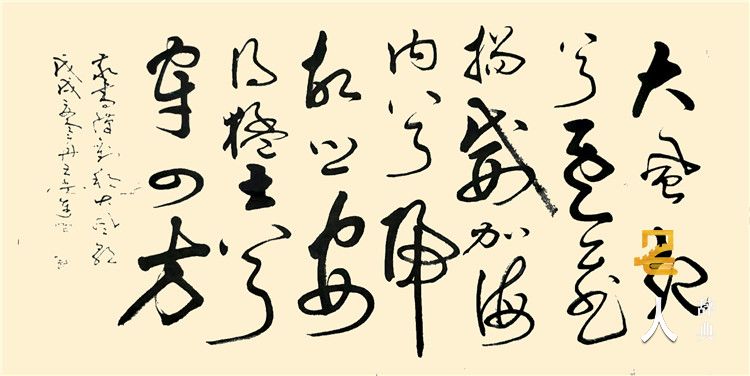 大風起
兮雲飛
揚威加海
内兮歸
故鄉安
得猛士兮
守四方
書漢劉邦大風歌
戊戌
名人辞典